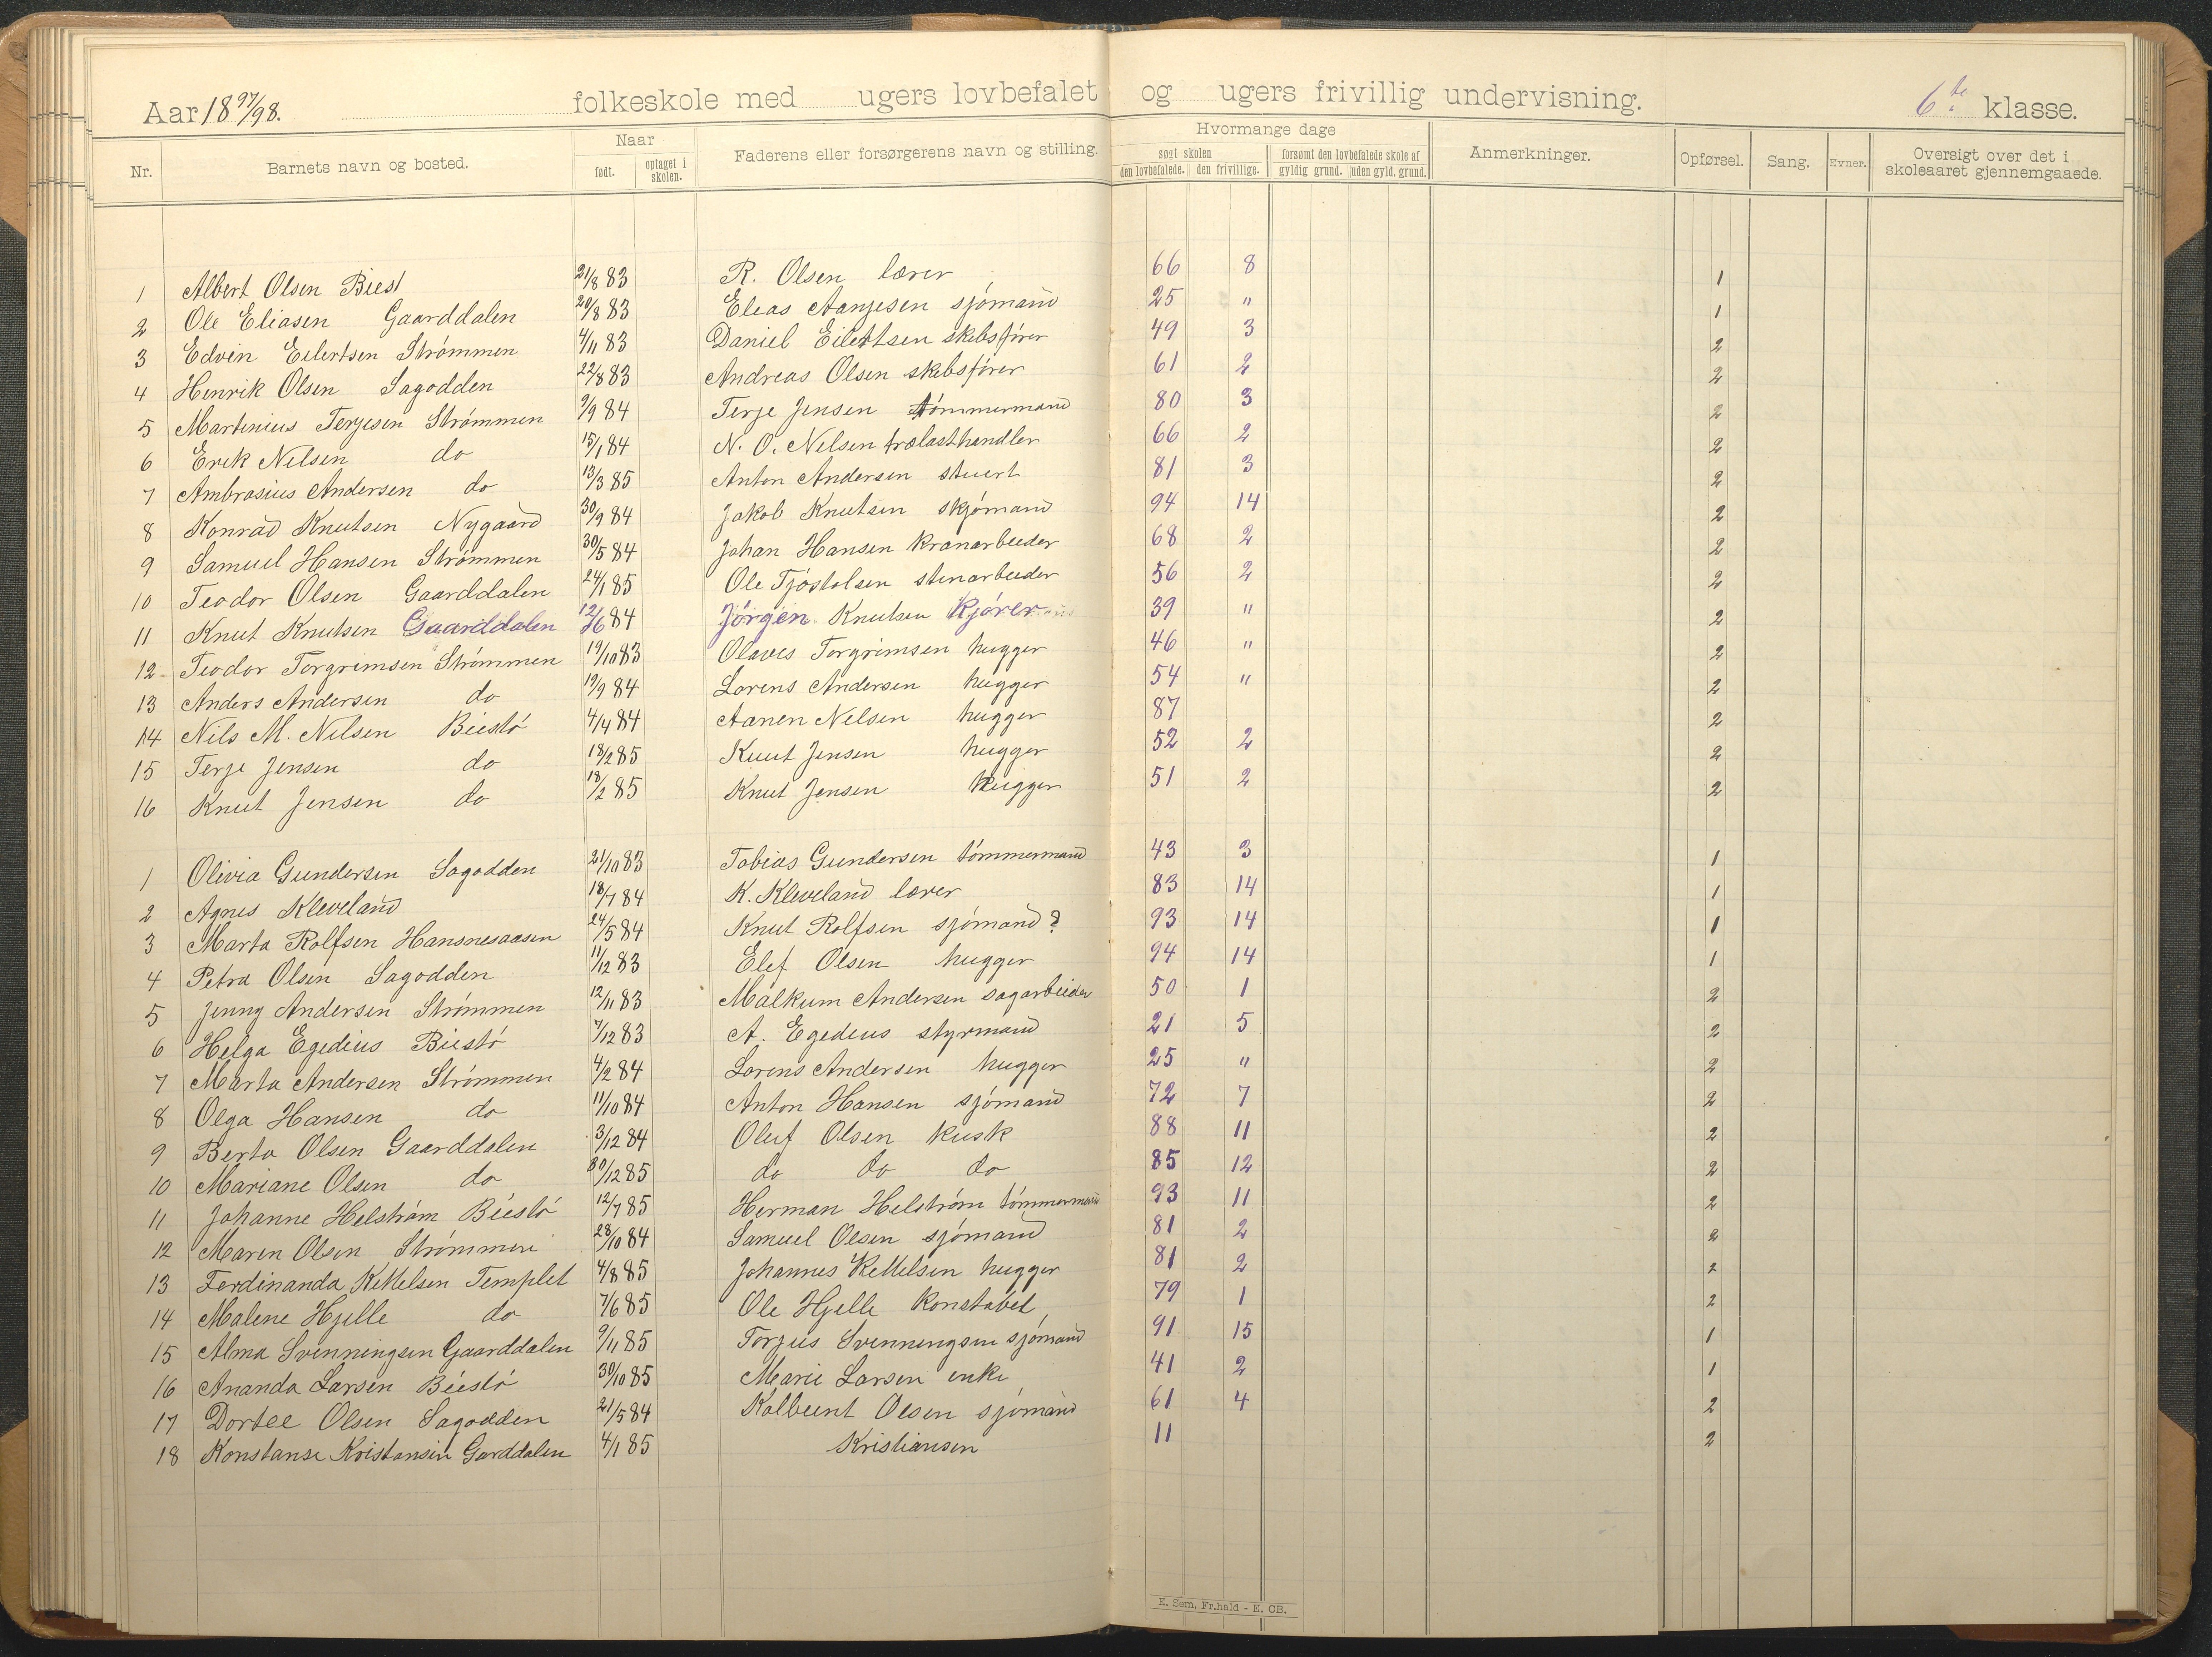 Aar 18 97/98. folkeskole med ugers lovbefalet og ugers frivillig undervisning. 6te klasse.
Nr. Barnets navn og bosted. Naar født. optaget i skolen. Faderens eller forsørgerens navn og stilling. Hvormange dage søgt skolen den lovbefalede. den frivillige. forsømt den lovbefalede skole af gyldig grund. uden gyld. grund. Anmerkninger. Opførsel. Sang. Evner. Oversigt over det i skoleaaret gjennemgaaede.
1 Albert Olsen Biest 21/8 83 R. Olsen lærer 66 8 1
2 Ole Eliasen Gaarddalen 20/8 83 Eleas Aanjesen sjómand 25 " 1
3 Edvin Eilertsen Strómmen 4/11 83 Daniel Eilertsen skibsfórer 49 3 2
4 Henrik Olsen Sagodden 22/8 83 Andreas Olsen skibsfórer 61 2 2
5 Martinius Terjesen Strómmen 9/9 84 Terje Jensen tómmermand 80 3 2
6 Erik Nilsen do 15/1 84 N. O. Nilsen trælasthandler 66 2 2
7 Ambrosius Andersen do 13/3 85 Anton Andersen stuert 81 3 2
8 Konrad Knutsen Nygaard 30/9 84 Jakob Knutsen skjómand 94 14 2
9 Samuel Hansen Strómmen 30/5 84 Johan Hansen kranarbeider 68 2 2
10 Teodor Olsen Gaarddalen 24/1 85 Ole Tjóstolsen stenarbeider 56 2 2
11 Knut Knutsen Gaarddalen 12/6 84 Jórgen Knutsen Kjórer 39 " 2
12 Teodor Torgrimsen Strómmen 19/10 83 Olaves Torgrimsen hugger 46 " 2
13 Anders Andersen do 19/9 84 Lorens Andersen hugger 54 " 2
14 Nils M. Nilsen Biestó 4/4 84 Aanen Nelsen hugger 87 2
15 Terje Jensen do 18/2 85 Knut Jensen hugger 52 2 2
16 Knut Jensen do 18/2 85 Knut Jensen hugger 51 2 2
1 Olivia Gundersen Sagodden 21/10 83 Tobias Gundersen tómmermand 43 3 1
2 Agnes Kleveland 18/7 84 K. Kleveland lærer 83 14 1
3 Marta Rolfsen Hansnesaasen 24/5 84 Knut Rolfsen sjómand ? 93 14 1
4 Petra Olsen Sagodden 11/12 83 Elef Olsen hugger 94 14 1
5 Jenny Andersen Strómmen 12/11 83 Malkum Andersen sagarbeider 50 1 2
6 Helga Egedius Biestó 7/12 83 A. Egedius styrmand 21 5 2
7 Marta Andersen Strómmen 4/2 84 Lorens Andersen hugger 25 " 2
8 Olga Hansen do 11/10 84 Anton Hansen sjómand 72 7 2
9 Berta Olsen Gaarddalen 3/12 84 Oluf Olsen kusk 88 11 2
10 Mariane Olsen do 30/12 85 do do do 85 12 2
11 Johanne Helstróm Biestó 12/7 85 Herman Helstróm tómmermand 93 11 2
12 Maren Olsen Strómmen 28/10 84 Samuel Olsen sjómand 81 2 2
13 Ferdinanda Kettelsen Templet 4/8 85 Johannes Kettelsen hugger 81 2 2
14 Malene Hjelle do 7/6 85 Ole Hjelle konstabel 79 1 2
15 Alma Svenningsen Gaarddalen 9/11 85 Torjus Svenningsen sjómand 91 15 1
16 Ananda Larsen Biestó 30/10 85 Marie Larsen enke 41 2 1
17 Dortee Olsen Sagodden 21/5 84 Kolbeint Olsen sjómand 61 4 2
18 Konstanse Kristansen Garddalen 4/1 85 Kristiansen 11 2
E. Sem, Fr.hald - E. CB.